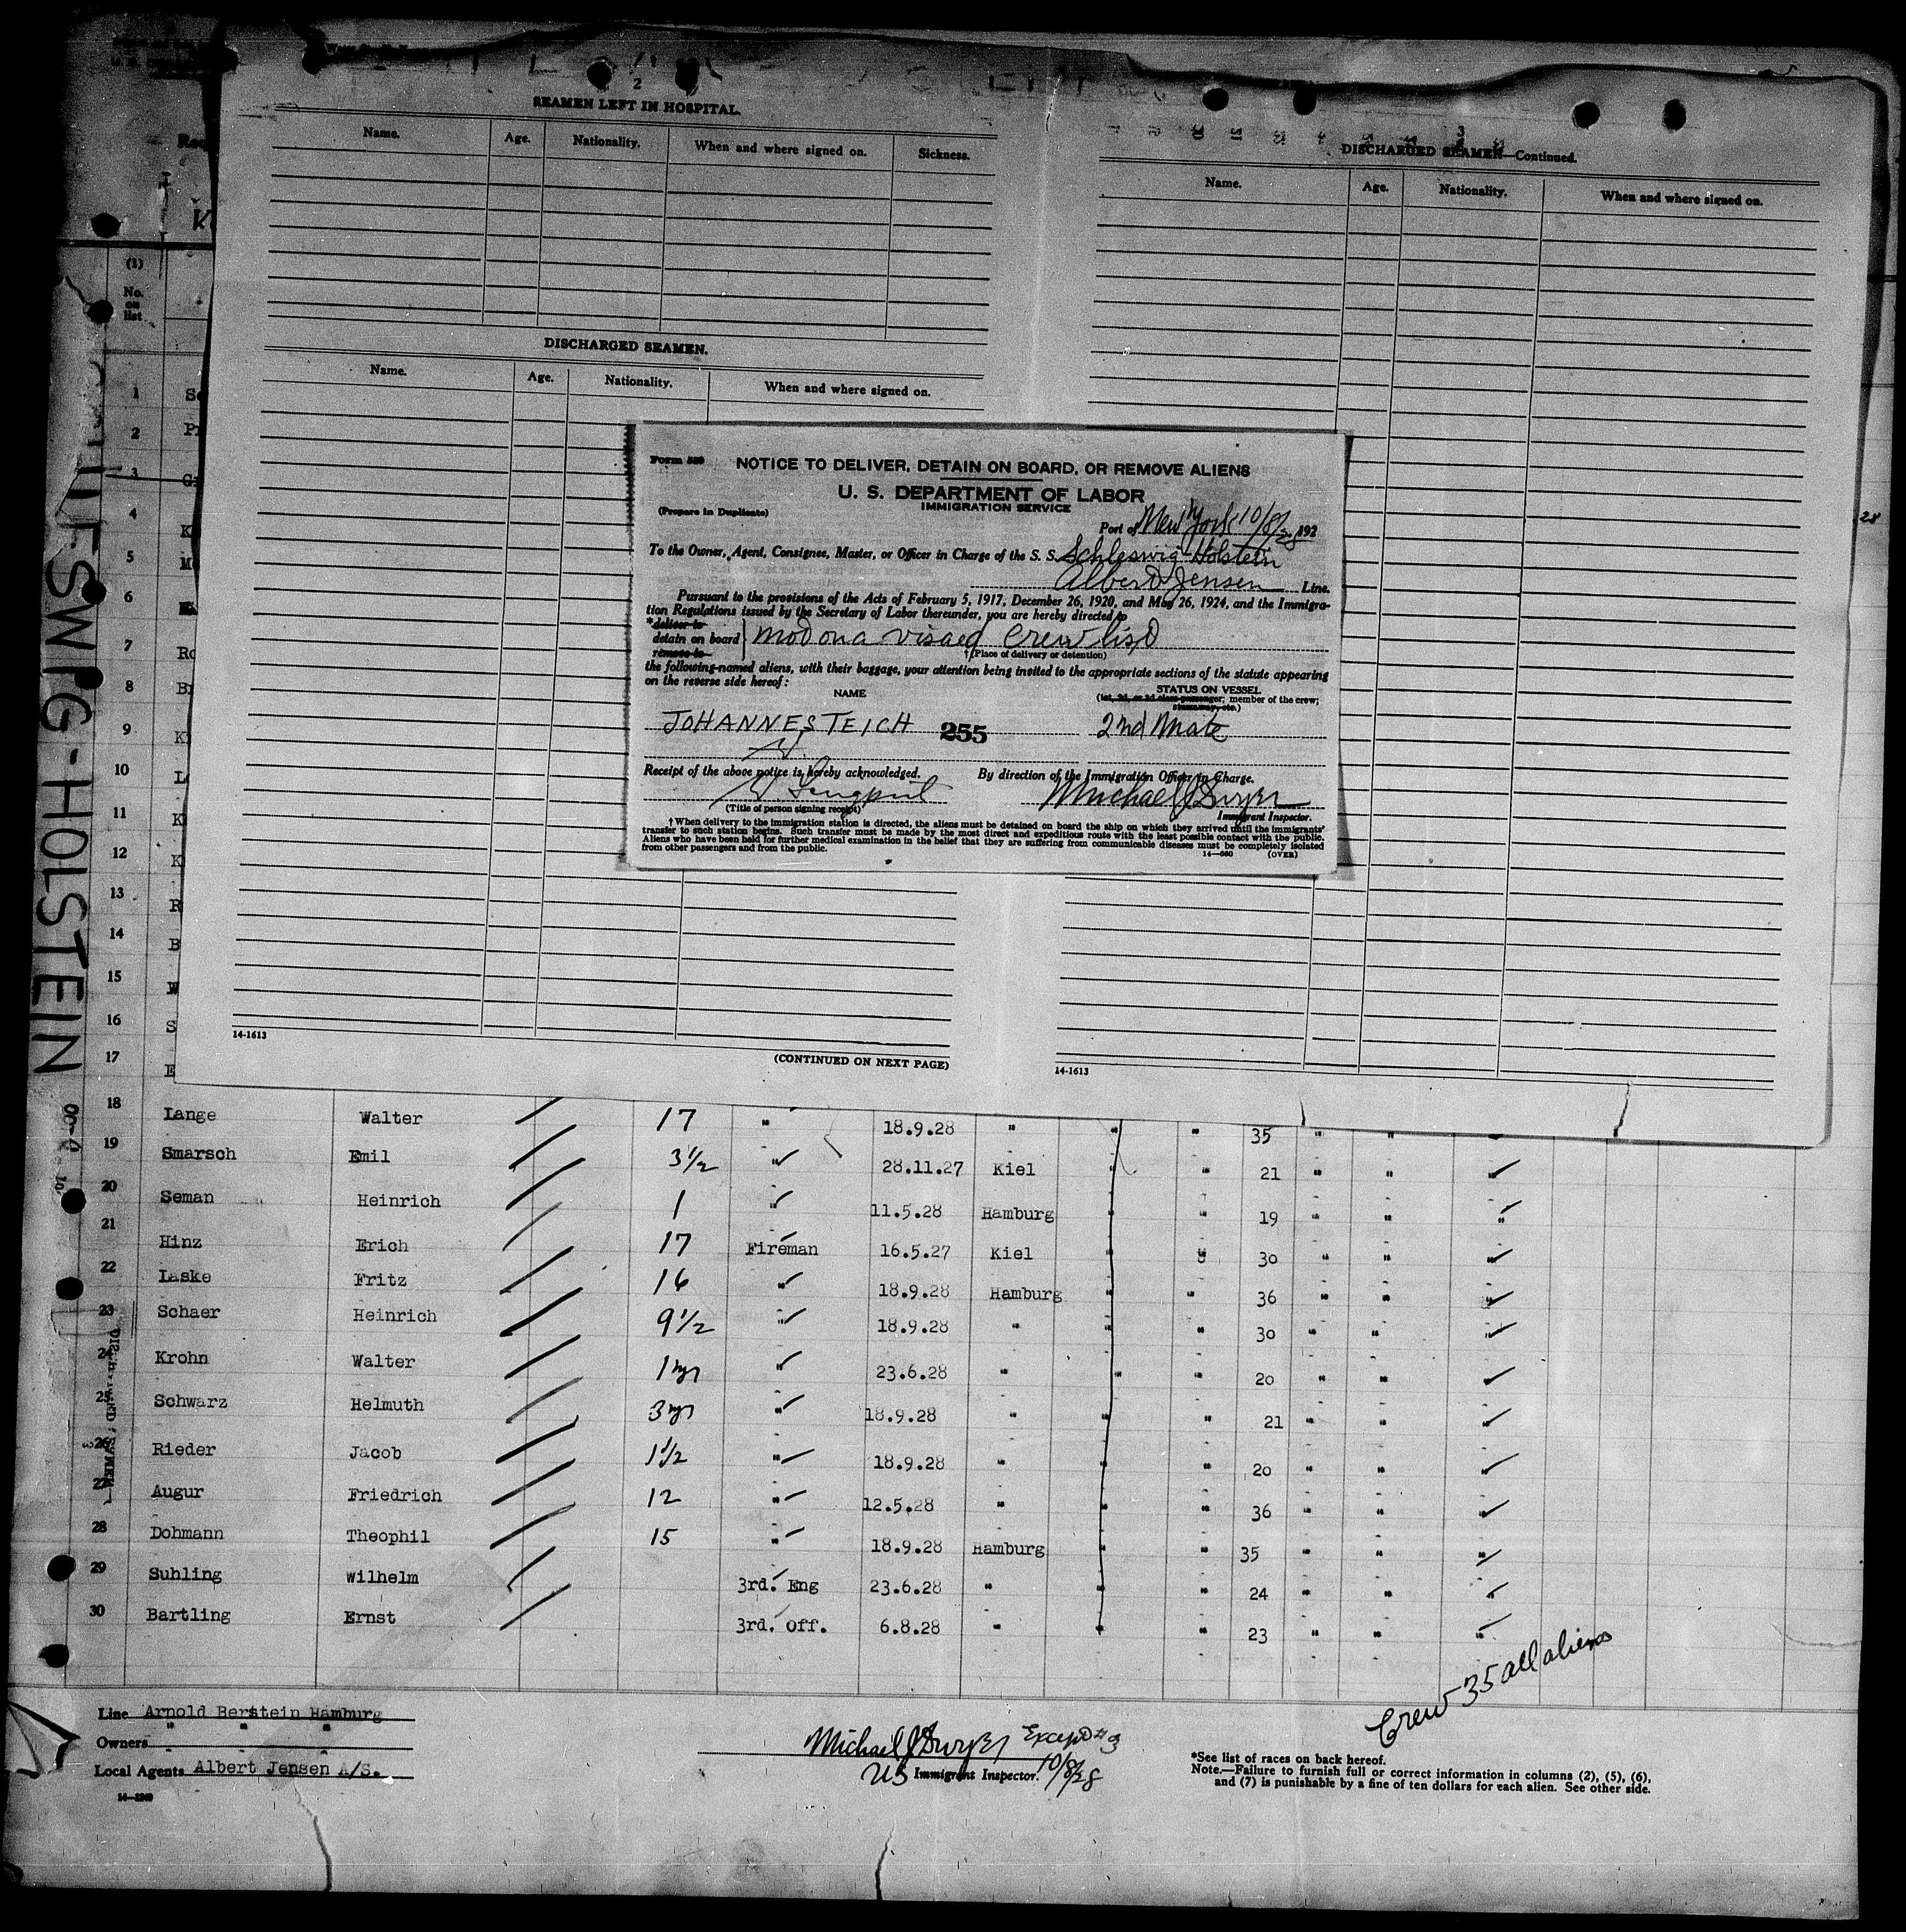 2
SEAMEN LEFT IN HOSPITAL.
Name. Age. Nationality. When and where signed on. Sickness.
3
DISCHARGED SEAMEN—Continued.
Name. Age. Nationality. When and where signed on.
(1)
No.
on
list
DISCHARGED SEAMEN.
Name. Age. Nationality. When and where signed on.
28
NOTICE TO DELIVER, DETAIN ON BOARD, OR REMOVE ALIENS
U. S. DEPARTMENT OF LABOR
IMMIGRATION SERVICE
(Prepare in Duplicate)
Port of New York 10/8/28 192
To the Owner, Agent, Consignee, Master, or Officer in Charge of the S. S. Schleswig-Holstein
Albert Jensen Line.
Pursuant to the provisions of the Acts of February 5, 1917, December 26, 1920, and May 26, 1924, and the Immigra-
tion Regulations issued by the Secretary of Labor thereunder, you are hereby directed to
*deliver to
detain on board
remove to
mod on a visaed Crew list
†(Place of delivery or detention)
the following-named aliens, with their baggage, your attention being invited to the appropriate sections of the statute appearing
on the reverse side hereof:
NAME
STATUS ON VESSEL
(1st, 2d, or 3d class passenger; member of the crew;
stowaway, etc.)
JOHANNES TEICH 255 2nd Mate
Receipt of the above notice is hereby acknowledged.
By direction of the Immigration Officer in Charge.
Michael J Dwyer
(Title of person signing receipt)
Immigrant Inspector.
†When delivery to the immigration station is directed, the aliens must be detained on board the ship on which they arrived until the immigrants'
transfer to such station begins. Such transfer must be made by the most direct and expeditious route with the least possible contact with the public.
Aliens who have been held for further medical examination in the belief that they are suffering from communicable diseases must be completely isolated
from other passengers and from the public.
14—660 (OVER)
1
2
3
4
5
6
7
8
9
10
11
12
13
14
15
16
17
14-1613
(CONTINUED ON NEXT PAGE)
14-1613
SWIG-HOLSTEIN
18 Lange Walter 17 " 18.9.28 " " " 35 " "
19 Smarsch Emil 3½ " 28.11.27 Kiel " " 21 " "
20 Seman Heinrich 1 " 11.5.28 Hamburg " " 19 " " "
21 Hinz Erich 17 Fireman 16.5.27 Kiel " " 30 " " "
22 Laske Fritz 16 " 18.9.28 Hamburg " " 36 " " "
23 Schaer Heinrich 9½ " 18.9.28 " " " 30 " " "
24 Krohn Walter 1 yr " 23.6.28 " " " 20 " " "
25 Schwarz Helmuth 3 yr " 18.9.28 " " " 21 " " "
26 Rieder Jacob 1½ " 18.9.28 " " " 20 " " "
27 Augur Friedrich 12 " 12.5.28 " " " 36 " " "
28 Dohmann Theophil 15 " 18.9.28 Hamburg " 35 " " "
29 Suhling Wilhelm 3rd. Eng 23.6.28 " " " 24 " " "
30 Bartling Ernst 3rd. Off. 6.8.28 " " " 23 " " "
Crew 35 all aliens
Line Arnold Berstein Hamburg
Owners " " "
Local Agents Albert Jensen A/S.
Michael J Dwyer Except #3
US Immigrant Inspector. 10/8/28
*See list of races on back hereof.
Note.—Failure to furnish full or correct information in columns (2), (5), (6),
and (7) is punishable by a fine of ten dollars for each alien. See other side.